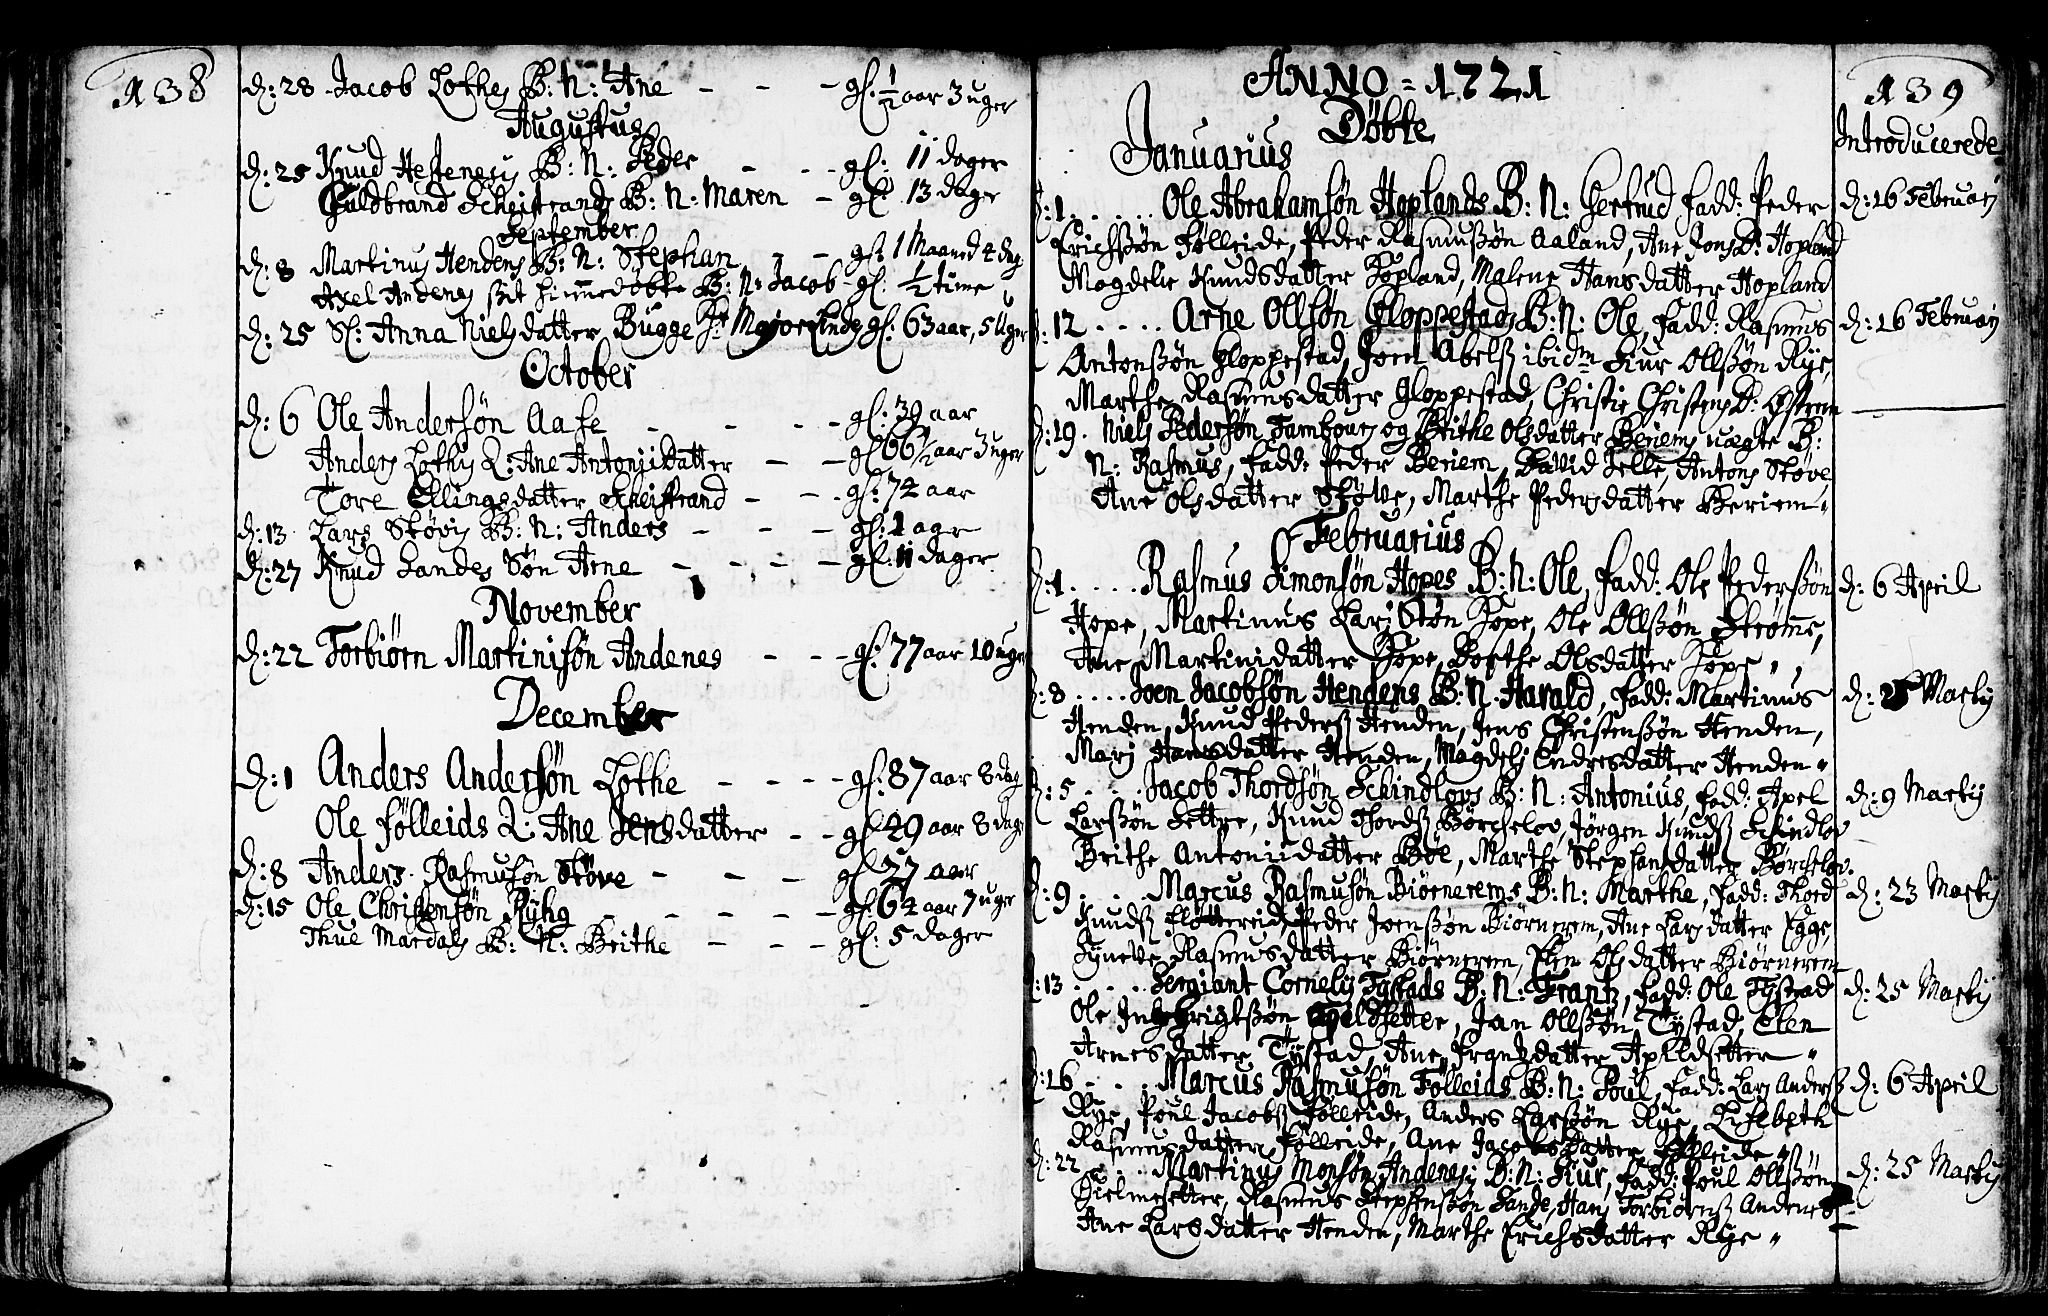 138
d: 28 Jacob Lothes B: N: Ane - - - gl: 1/2 aar 3 uger
Augustus
d: 25 Knud Hestenesij B: N: Peder - - - gl: 11 dager
Guldbrand Scheistrands B: N: Maren - gl: 13 dager
September
d: 8 Martinus Hendens B: N: Stephan - - gl: 1 Maaned 4 dag
Axel Andenes hiemmedøbte B: N: Jacob - gl: 1/2 time
d: 25 Sl: Anna Nielsdatter Bugge Sr Major gl: 63 aar, 5 Uger
October
d: 6 Ole Andersøn Aase - - - gl: 39 aar
Anders Lothes Q: Ane Antonii Datter - - gl 66 1/2 aar 3 uger
Tore Ellingsdatter Scheistrand - - gl: 74 aar
d: 13 Lars Støvis B: N: Anders - - - gl: 1 aar
d: 27 Knud Sandes Søn Arne - - - - gl: 11 dager
November
d: 22 Torbiørn Martinisøn Andenes - - - gl: 77 aar 10 uger
December
d: 1 Anders Andersøn Lothe - - - - gl: 87 aar 8 dag
Ole Følleids Q: Ane Jensdatter - - gl 29 aar 8 dage
d: 8 Anders Rasmusøn Støve - - - gl 27 aar
d: 15 Ole Christensøn Ryhg - - - - gl: 64 aar 7 uger
Thue Mardals B: N: Brithe - - - gl: 5 dager
ANNO = 1721
139
Døbte
Introducerede
Januarius
d: 1 . . . . . Ole Abrahamsøn Hoplands B: N: Gertrud fadd: Peder d: 16 Februarij
Erichssøn Følleide, Peder Rasmussøn Aaland, Ane Jons D: Hopland
Magdele Knudsdatter Hopland, Malene Hansdatter Hopland
d: 12 . . . . Arne Ollsøn Gloppestads B: N: Ole, fadd: Rasmus d: 16 Februarij
Antonssøn Gloppestad, Joen Abelss ibidm Siur Ollssøn Rye,
Marthe Rasmusdatter Gloppestad, Christie Christens D:
d: 19. Niels Pedersøn Tambour og Brithe Olsdatter Beriems uægte B:
N: Rasmus, fadd: Peder Beriem, David Jelle, Antons Støve,
Ane Olsdatter Støve, Marthe Pedersdatter Beriem
Februarius
d: 1 . . . . Rasmus Simonsøn Hopes B: N: Ole, fadd: Ole Pederssøn d: 6 April
Hope, Martinus Lars Søn Hope, Ole Ollssøn Strømme,
Ane Martinidatter Hope, Borthe Olsdatter Hope
d: 8 . . . . Joen Jacobsøn Hendens B: N: Harald, fadd: Martinus d: 25 Martij
Henden, Knud Pederss Henden, Jens Christenssøn Henden,
Mari Hansdatter Henden, Magdeli Endresdatter Henden
d: 5 . . . . Jacob Thordsøn Schindlovs B: N: Antonius, fadd: Axel d: 9 Martij
Larssøn Settre, Knud Thordss Børchelov, Jørgen Knudss Schindlov
Brithe Antoniidatter Bøe, Marthe Stephansdatter Børchelov
d: 9 . . . . Marcus Rasmusøn Biørnerems B: N: Marthe, fadd: Thord d: 23 Martij
Knudss Fløttereid, Peder Joenssøn Biørnerem, Ane Larsdatter Egge,
Syneve Rasmusdatter Biørnerem, Elen Olsdatter Biørnerem
d: 13 . . . . Sergiant Cornelij Tystads B: N: Frantz, fadd: Ole Tystad d: 25 Martij
Ole Ingebrigtssøn Apeldsetter, Jan Ollssøn Tystad, Elen
Arnesdatter Tystad, Ane Frantzdatter Apeldsetter
d: 16 . . . . Marcus Rasmusøn Følleids B: N: Poul, fadd: Lars Anderss d: 6 April
Rye, Poul Jacobss Følleide, Anders Larssøn Rye, Lisebeth
Rasmusdatter Følleide, Ane Jacobsdatter Følleide
d: 22 . . . . Martinus Monsøn Andenesij B: N: Siur, fadd: Poul Ollssøn d: 25 Martij
Hielmesetter, Rasmus Stephenssøn Sande, Hans Torbiørnss Andenes
Ane Larsdatter Henden, Marthe Erichsdatter Rye